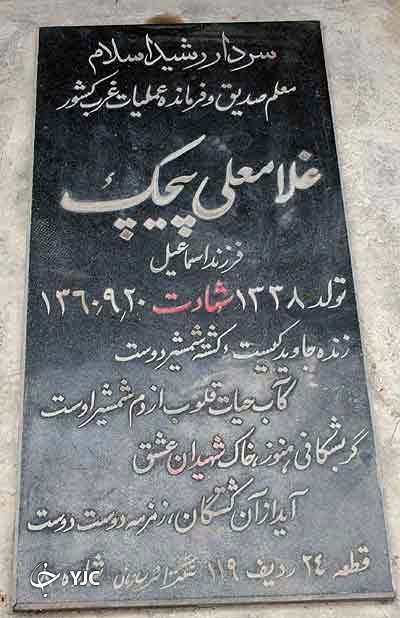 سردار رشید اسلام
معلم صدیق و فرمانده عملیات غرب کشور
غلامعلی پیچک
فرزند اسماعیل
تولد ۱۳۳۸ شهادت ۱۳۶۰٫۹٫۲۰
زنده جاوید کیست ؛ کشته شمشیر دوست
کآب حیات قلوب از دم شمشیر اوست
گر بشکافی هنوز ، خاک شهیدان عشق
آید از آن کشتگان ، زمزمه دوست دوست
قطعه ۲۴ ردیف ۱۱۹ شماره
YJC